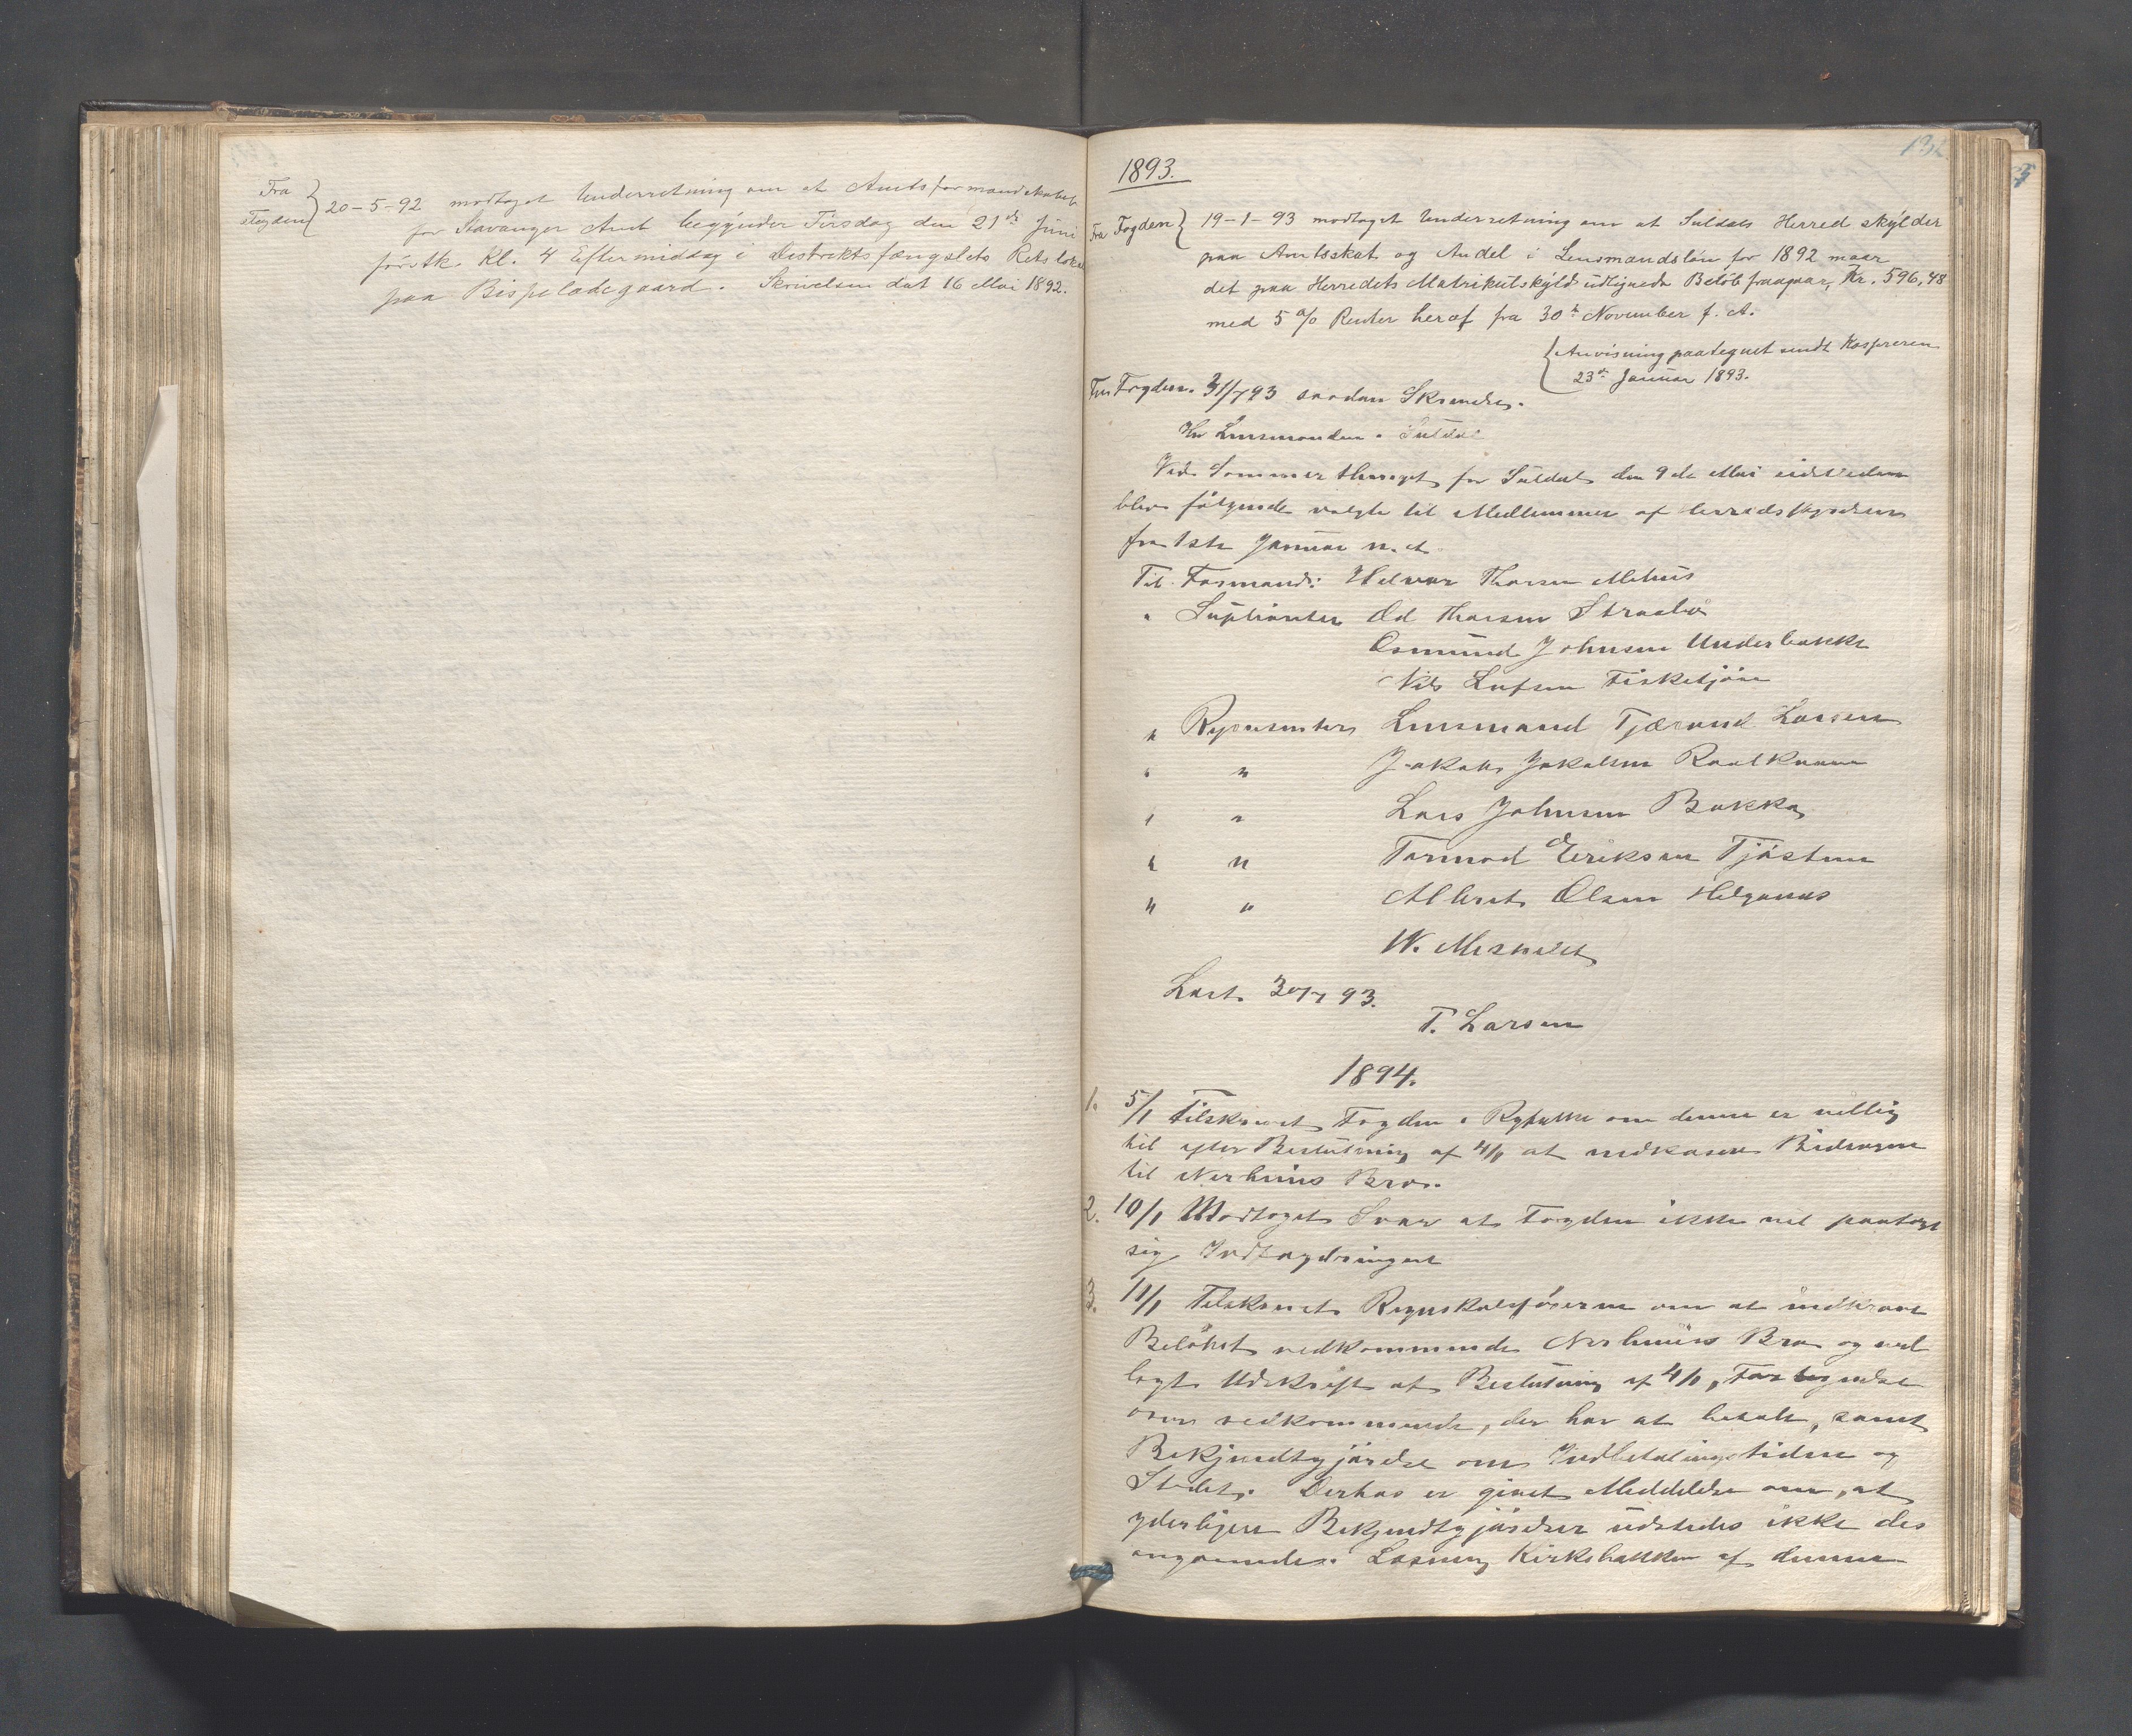 Fra Fogden } 20-5-92 modtaget Underretning om at Amtsformandskabet
for Stavanger Amt begynder Tirsdag den 21de Juni
førstk. Kl. 4 Eftermiddag i Distriktsfængslets Retslokale
paa Bispeladegaard. Skrivelsen dat 16 Mai 1892.
132
1893.
Fra Fogden } 19-1-93 modtaget Underretning om at Suldals Herred skylder
paa Amtsskat og Andel i Lensmandsløn for 1892 naar
det paa Herredets Matrikulskyld udlignede Beløb fragaar, Kr. 596,48
med 5 % Renter heraf fra 30te November f. A.
{ Anvisning paategnet sendt Kassereren
23de Januar 1893.
Fra Fogden. 31/7 93 saadan Skrivelse.
Hr Lensmanden i Suldal
Ved Sommerthinget for Suldal den 9de Mai sidstleden
blev følgende valgte til Medlemmer af herredsstyrelsen
fra 1ste Januar n. A.
Til Formand: Helver Thorsen Mehus
" Suplianter Od Thorsen Straabø
Osmund Johnsen Underbakke
Nils Leifsen Fisketjøn
" Repræsenter Lensmand Tjærand Larsen
" " Jakob Jakobsen
" " Lars Johnsen Bakka
" " Tormod Eeriksen Tjøstem
" " Albret Olsen Helganæs
W.
Læst 30/7 93.
T. Larsen
1894.
1. 5/1 Tilskrevet Fogden i Ryfylke om denne er villig
til efter Beslutning af 4/1 at indkasere Bidragene
til Nerhuus Bro.
2. 10/1 Modtaget Svar at Fogden ikke vil paatage
sig Indfordringen
3. 11/1 Tilskrevet Regnskabsføreren om at indkræve
Beløbet vedkommende Nerhuus Bro og ved
lagt Udskrift af Beslutning af 4/1, Fortegnelse
over vedkommende, der har at betale, samt
Bekjendtgjørelse om Indbetalingstiden og
Stedet. Derhos er givet Meddelelse om, at
yderligere Bekjendtgjørelser udstedes ikke des
angaaende. Læsning Kirkebakken af denne